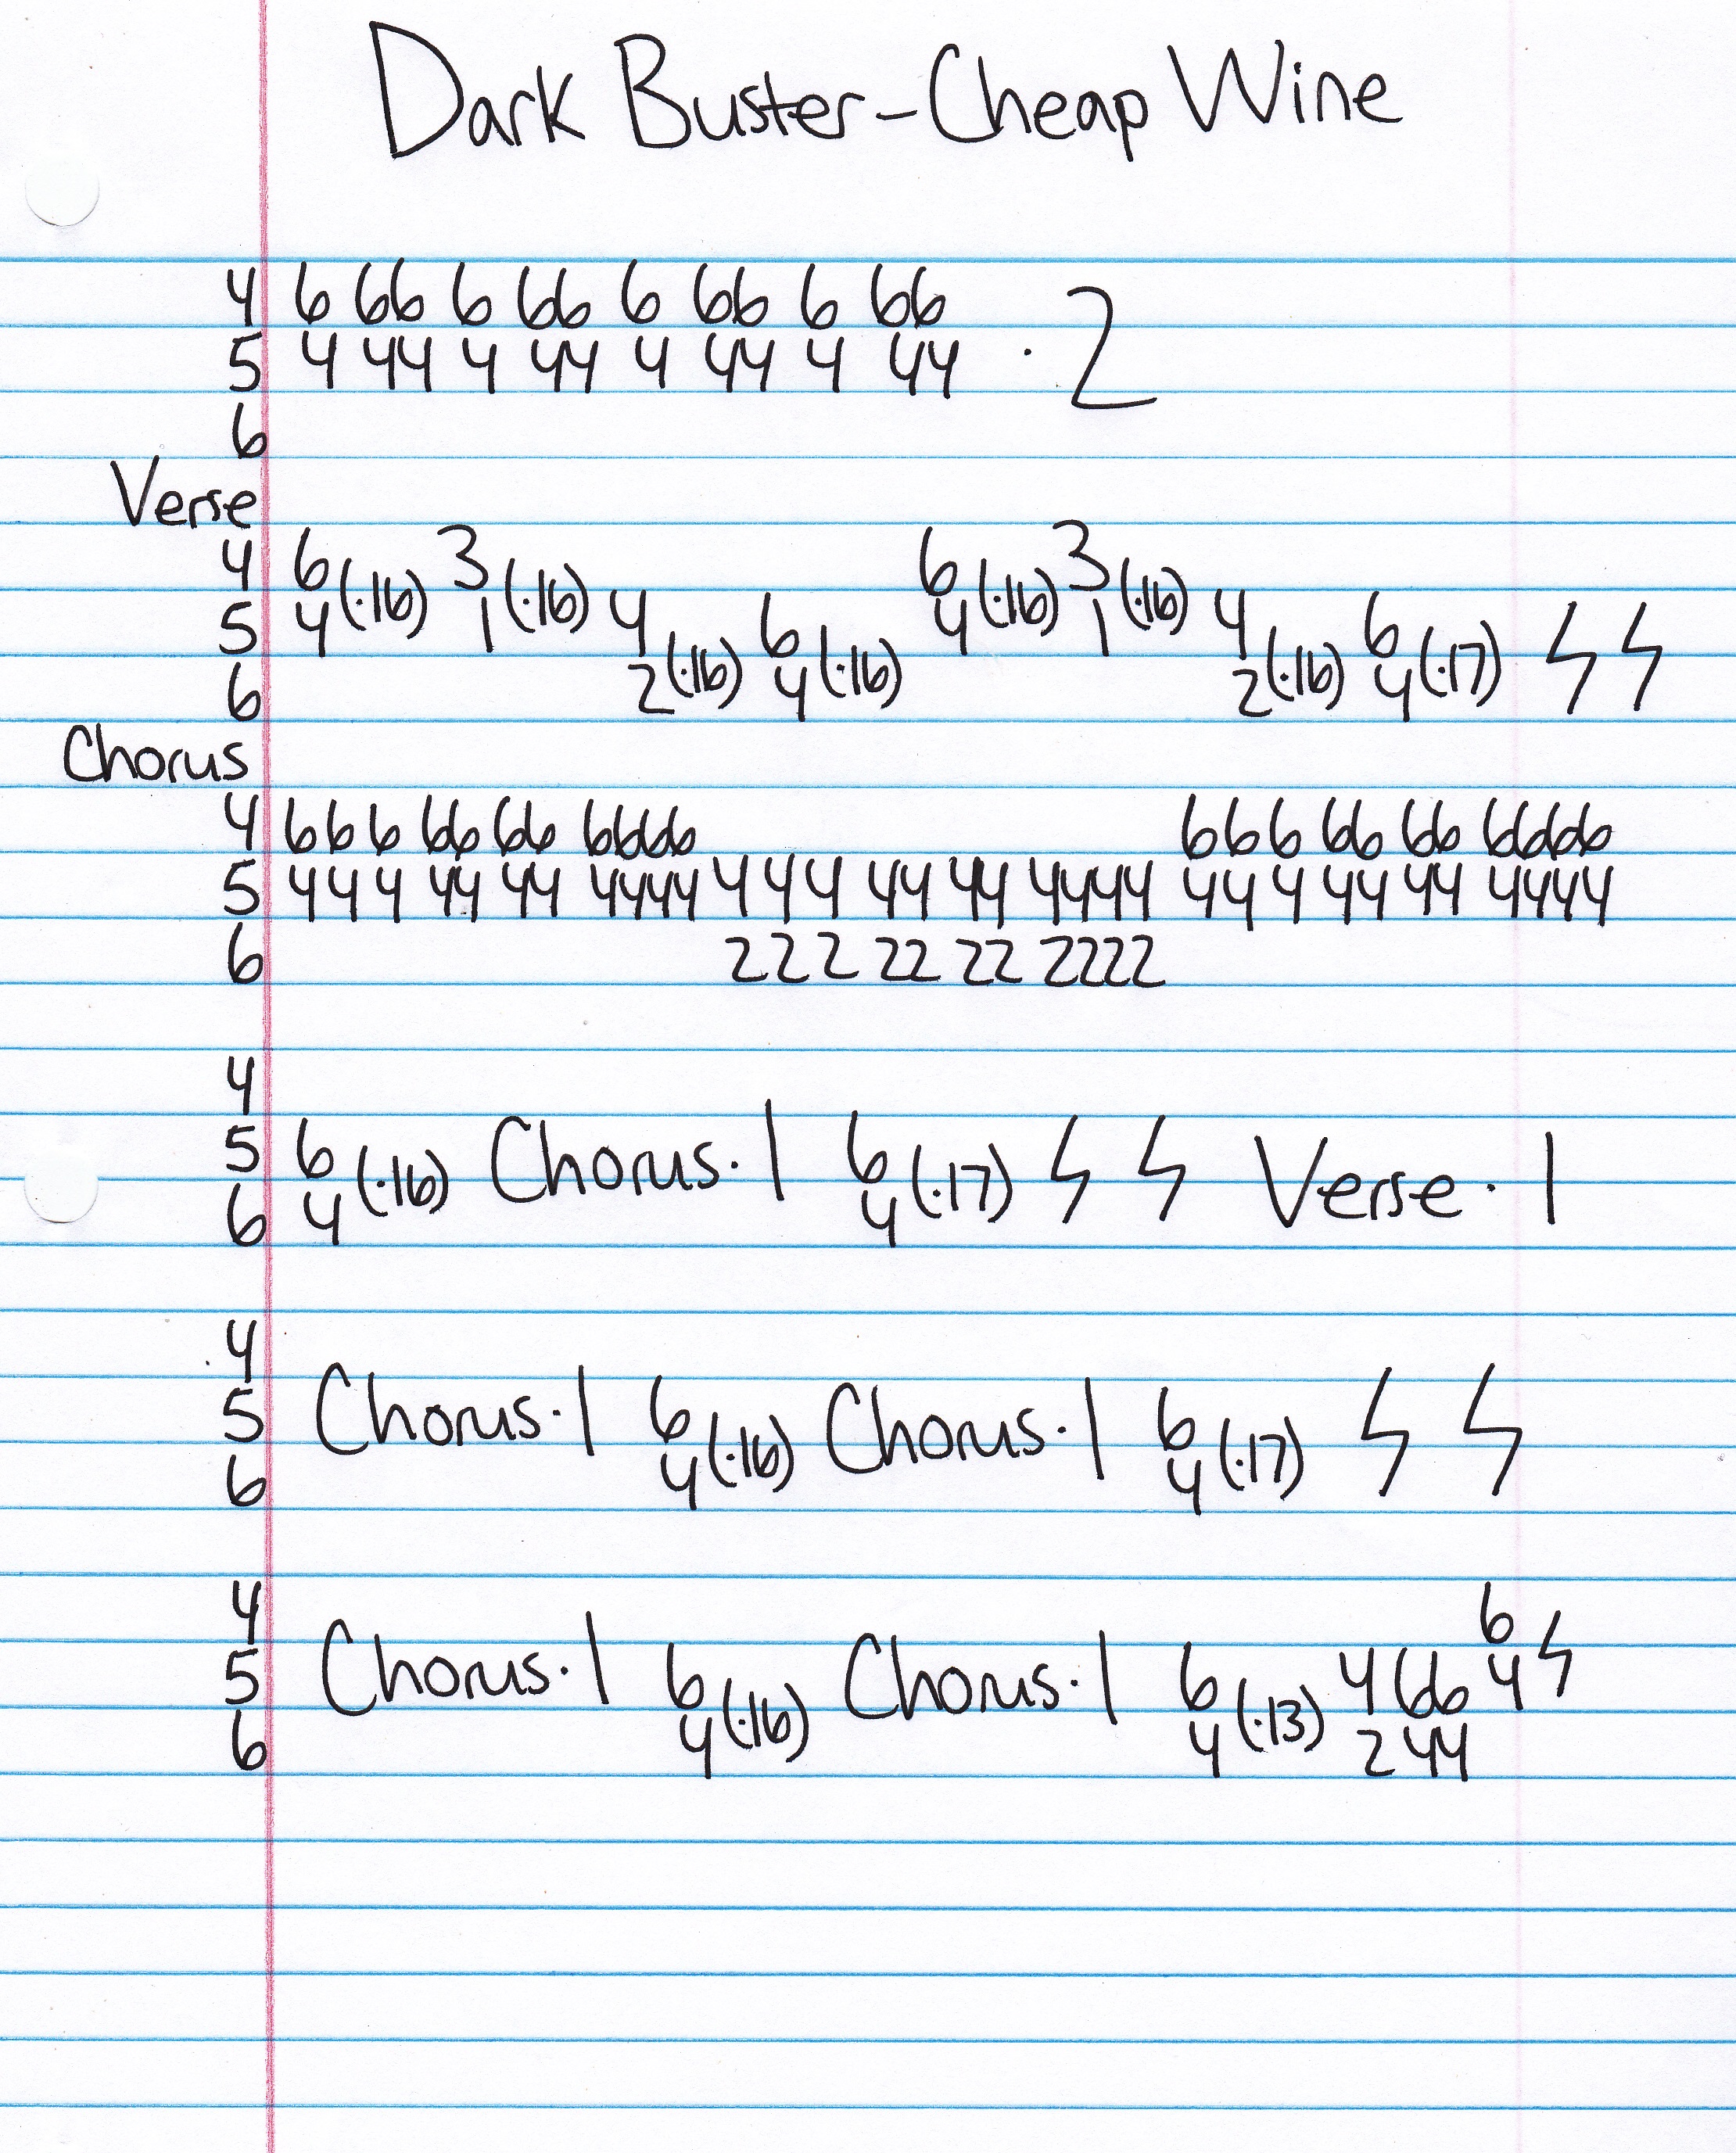 Dark Buster-Cheap Wine
4 6 66 6 66 6 66 6 66
5 4 44 4 44 4 44 4 44 · 2
6
Verse
4 6(·16) 3(·16) 6(·16) 3(·16)
5 4 1 4 6 4 1 4 6 ϟ ϟ
6 2(·16) 4(·16) 2(·16) 4(·17)
Chorus
4 6 6 6 66 66 6666 6 6 6 66 66 6666
5 4 4 4 44 44 4444 4 4 4 44 44 4444 4 4 4 44 44 4444
6 2 2 2 22 22 2222
4
5 6 Chorus·1 6 ϟ ϟ Verse·1
6 4(·16) 4(·17)
4
5 Chorus·1 6 Chorus·1 6 ϟ ϟ
6 4(·16) 4(·17)
4 6
5 Chorus·1 6 Chorus·1 6 4 66 4 ϟ
6 4(·16) 4(·13) 2 44